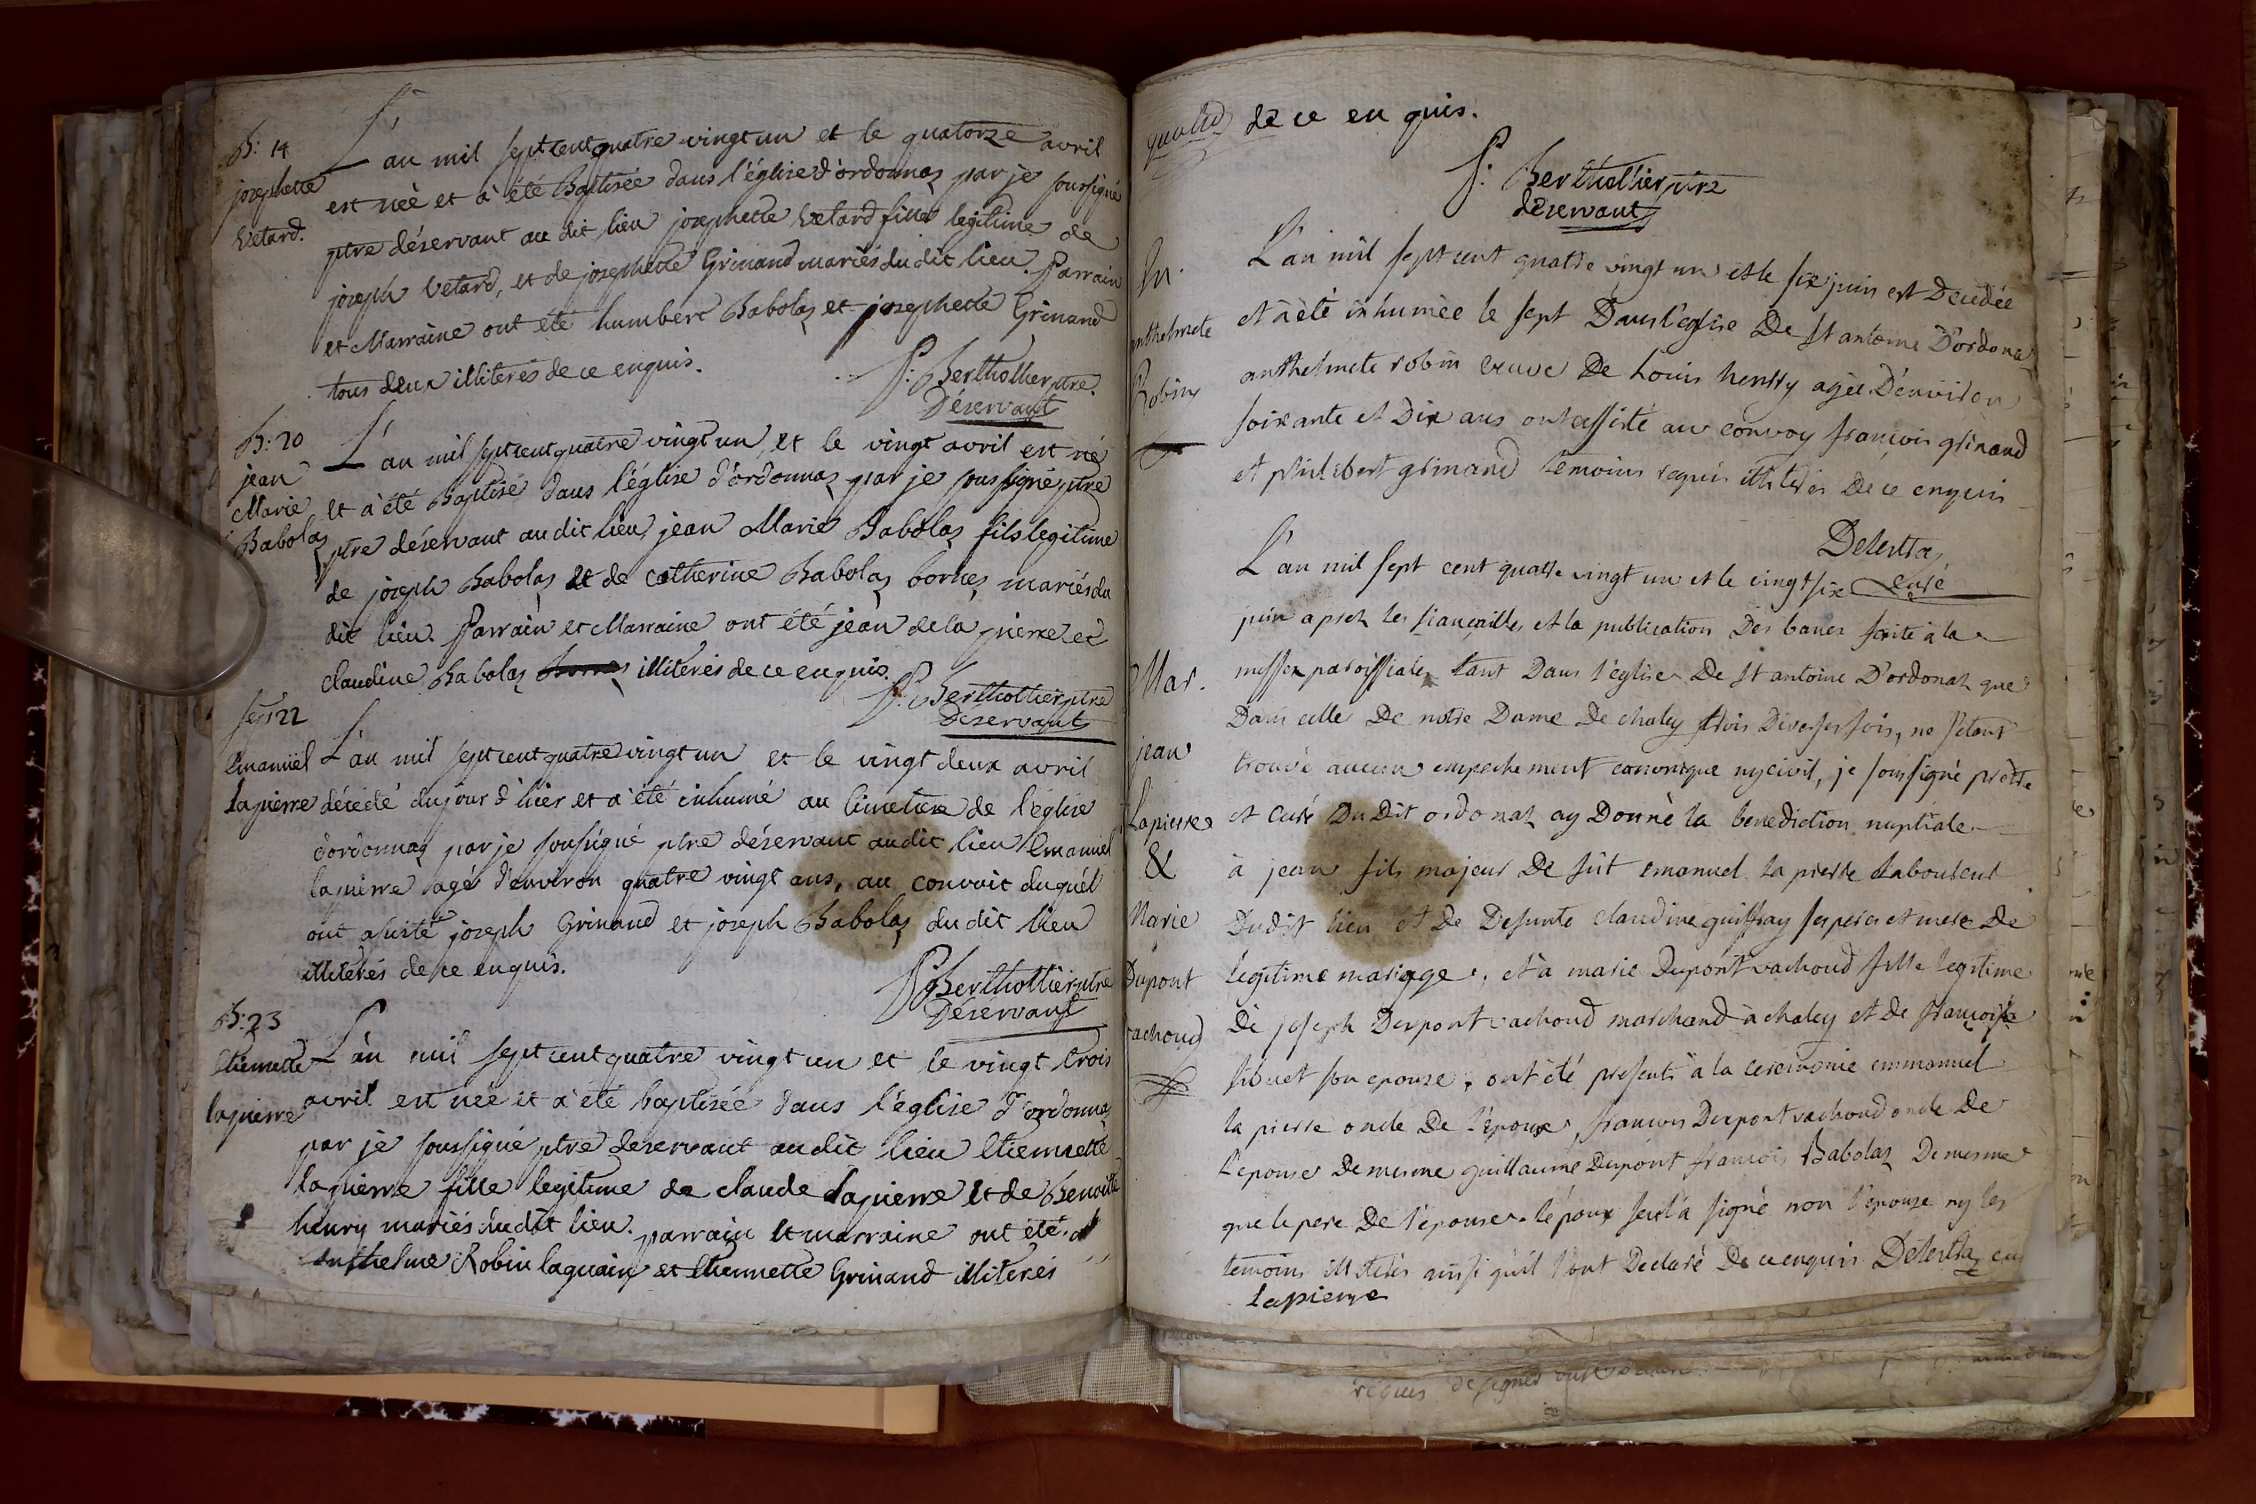 B: 14
josephette
Vetard.
L'an mil sept cent quatre vingt un et le quatorze avril
est née et à été Baptisée dans l'église d'ordonnaz par je soussigné
ptre déservant au dit lieu josephette Vetard fille legitime de
joseph Vetard, et de josephette Grinand mariés du dit lieu. Parrain
et Marraine ont été humbert Babolaz et josephette Grinand
tous deux illiterés de ce enquis.
P: Berthollier ptre.
Déservant
B: 20
jean
Marie
Babolaz
L'an mil sept cent quatre vingt un, et le vingt avril est né
et à été Baptisé dans l'église d'ordonnaz par je soussigné ptre
ptre déservant au dit lieu jean Marie Babolaz fils legitime
de joseph Babolaz et de catherine Babolaz bornez mariés du
dit lieu. Parrain et Marraine ont été jean de la pierre et
claudine Babolaz illiterés de ce enquis.
P: Berthollier ptre
Déservant
22
Emanuel
Lapierre
L'an mil sept cent quatre vingt un et le vingt deux avril
décédé du jour d'hier et a été inhumé au Cimetiere de l'église
d'ordonnaz par je soussigné ptre déservant au dit lieu Emanuel
lapierre agé d'environ quatre vingt ans, au convoit duquél
ont assisté joseph Grinand et joseph Babolaz du dit lieu
illiterés de ce enquis.
P: Berthollier ptre
Déservant
B: 23
Etiennette
lapierre
L'an mil sept cent quatre vingt un et le vingt trois
avril est née et a été baptisée dans l'église d'ordonnaz
par je soussigné ptre deservant au dit lieu Etiennette
lapierre fille legitime de claude lapierre et de Benoite
henry mariés du dit lieu. parrain et marraine ont été
anthelme Robin et Etiennette Grinand illiterés
de ce en quis.
P: Berthollier ptre
déservant
In.
anthelmete
Robin
L'an mil sept cent quatre vingt un et le six juin est Decedée
et à èté inhumée le sept Dans l'eglise De St antoine D'ordonaz
anthelmete robin veuve De Louis henrry agée D'environ
soixante et Dix ans ont assisté au convoy francois grinand
et philibert grinand temoins requis illiterés De ce enquis
Delestra
curé
Mar.
jean
Lapierre
&
Marie
Dupont
vachoud
L'an mil sept cent quatre vingt un et le vingt six
juin aprez les fiançailles et la publication Des bancs faite à la
messe paroissiale tant Dans l'eglise De St antoine D'ordonaz que
Dans celle De notre Dame De chaley trois Diverses fois, ne s'etant
trouvé aucun empechement canonique ny civil, je soussigné prêtre
et Curé Du Dit ordonaz ay Donnè la benediction nuptiale
à jean fils majeur De fût emanuel la pierre Laboureur
Dudit lieu et de Defunte claudine guiffray ses pere et mere De
legitime mariage, et à marie Dupont vachoud fille legitime
De joseph Dupont vachoud marchand à chaley et de françoise
sibuet son epouse, ont été presents à la ceremonie emmanuel
la pierre oncle De l'epoux, francois Dupont vachoud oncle De
l'epouse De mesme guillaume Dupont francois Babolaz De mesme
que le pere De l'epouse. l'époux seul à signé non l'epouse ny les
temoins illiterés ainsi qu'il l'ont Declaré De ce enquis Delestra cu
Lapierre